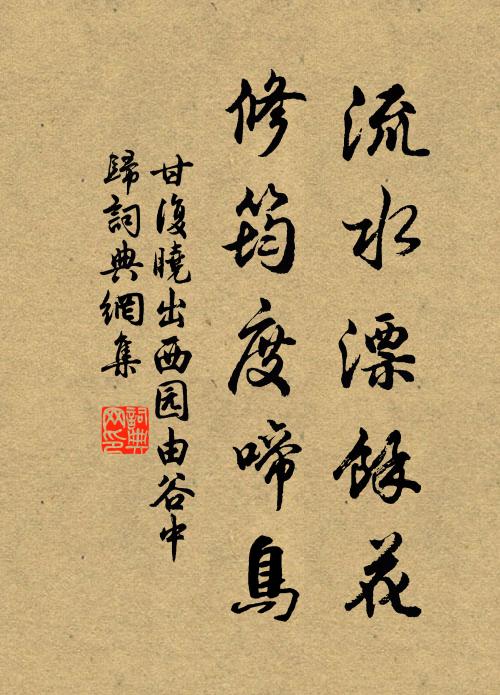 流水漂餘花
修筠度啼鳥
甘復曉出西园由谷中
歸詞典網集
詞典网印